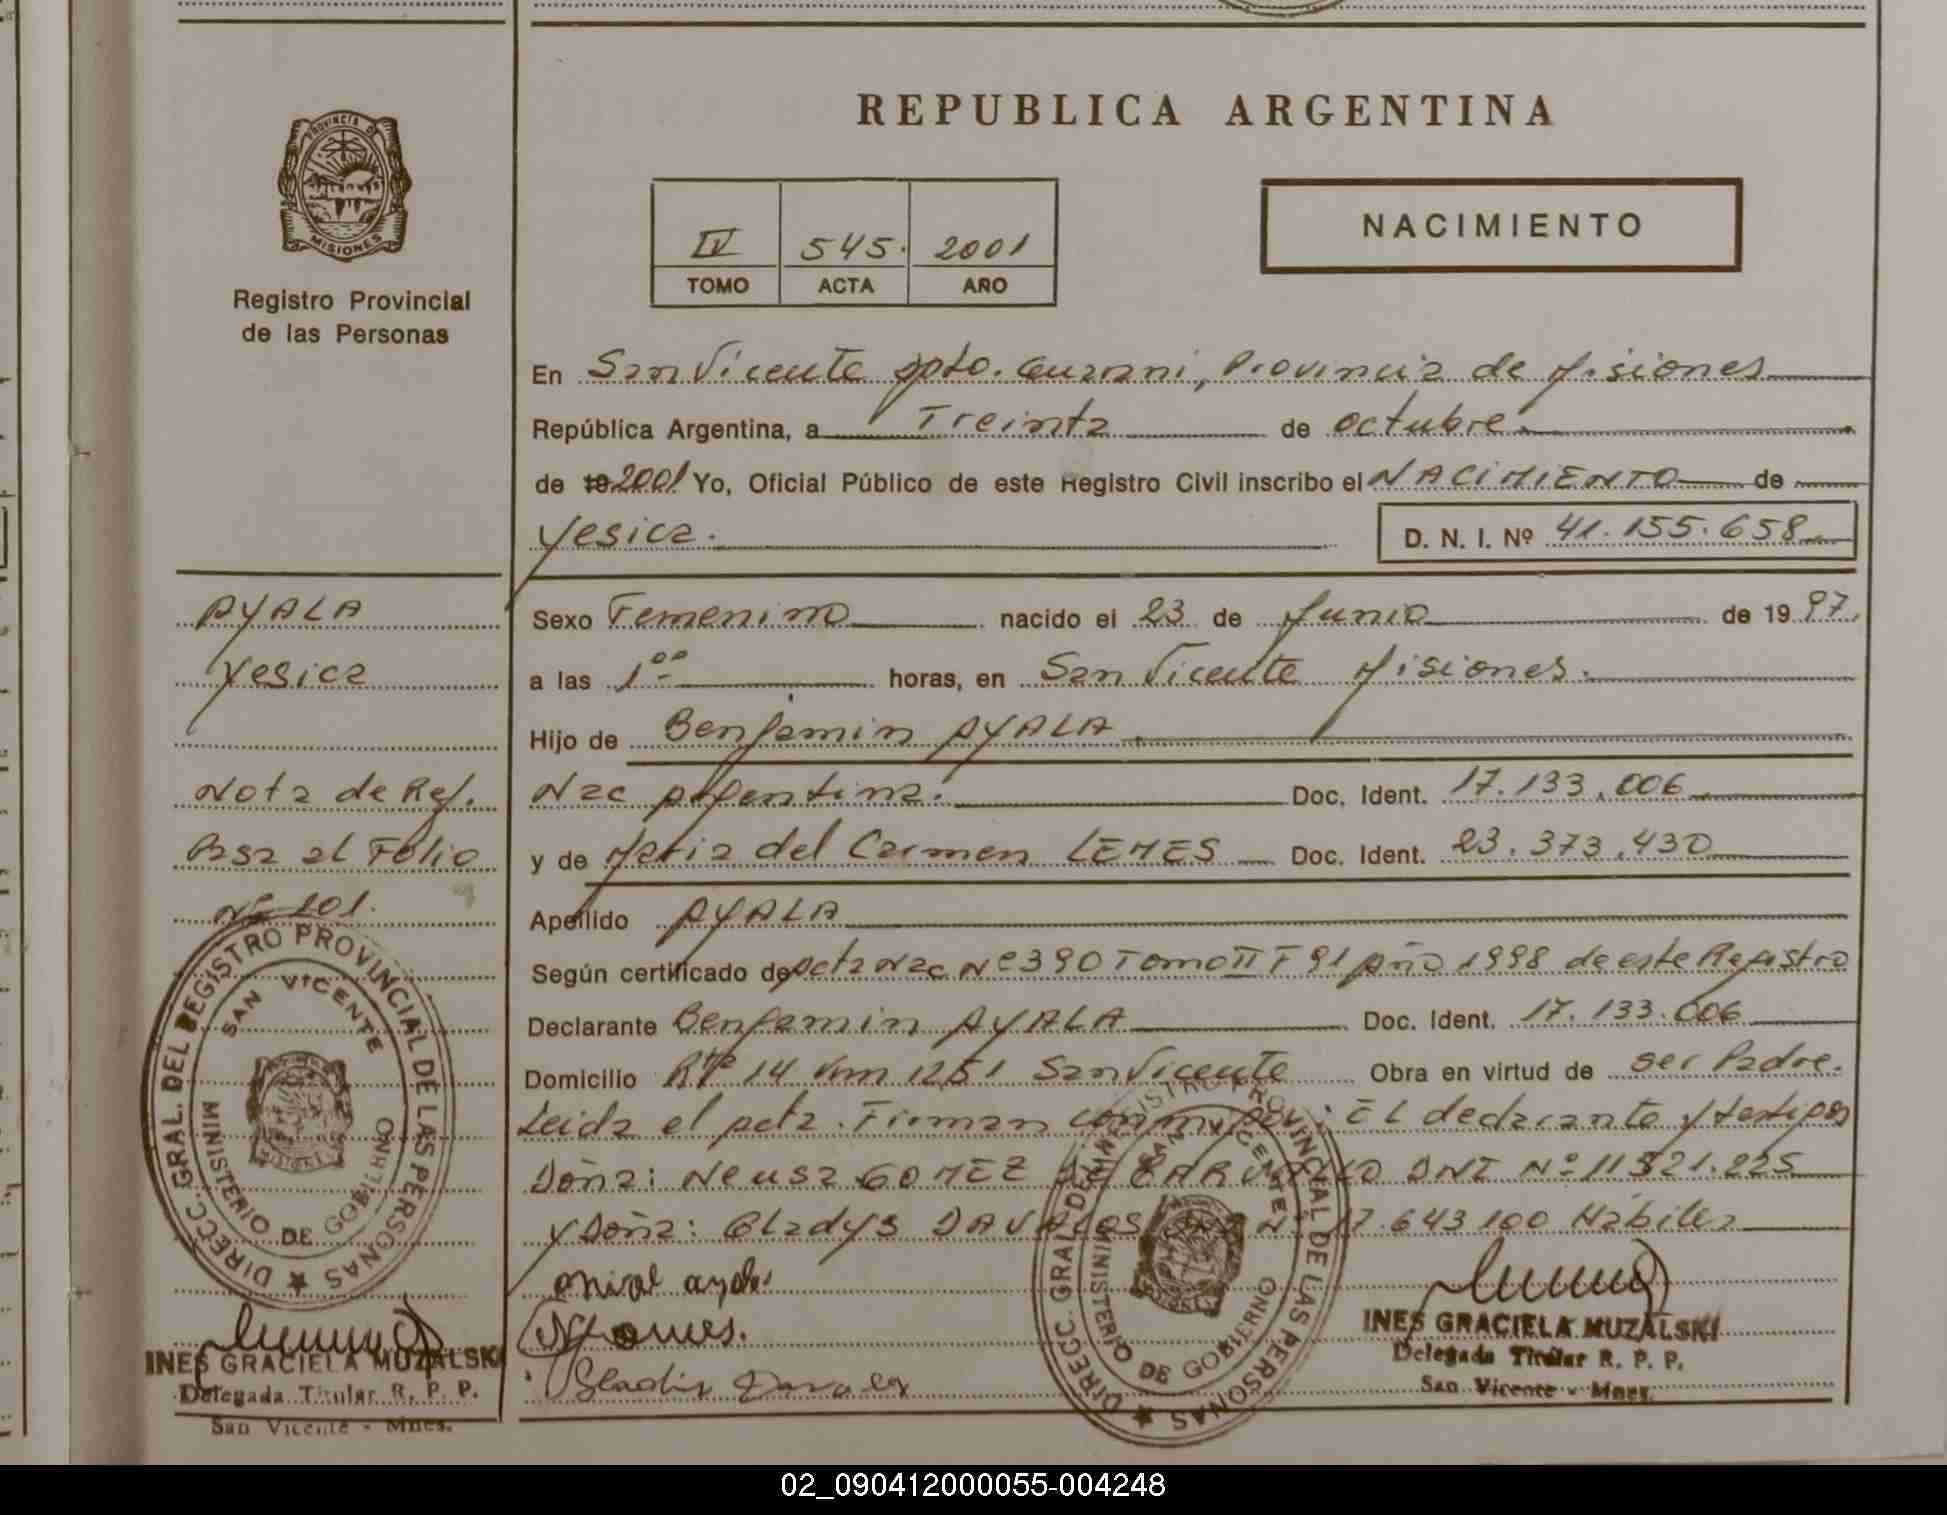 REPUBLICA ARGENTINA
PROVINCIA D
MISIONES
Registro Provincial
de las Personas
IV 545. 2001
TOMO ACTA AÑO
NACIMIENTO
En San Vicente Dpto. Guarani, Provincia de Misiones
República Argentina, a Treinta de octubre
de 19 2001 Yo, Oficial Público de este Registro Civil inscribo el NACIMIENTO de
Yesica. D. N. I. Nº 41.155.658
AYALA
Yesica
Nota de Ref.
Pasa al Folio
Nº 101.
Sexo Femenino nacido el 23 de Junio de 19 97.
a las 1°° horas, en San Vicente Misiones.
Hijo de Benjamin AYALA
Nac Argentina. Doc. Ident. 17.133.006
y de Maria del Carmen LEMES Doc. Ident. 23.373.430
Apellido AYALA
Según certificado de Acta Nac Nº 390 Tomo II F 91 Año 1998 de este Registro
Declarante Benjamin AYALA Doc. Ident. 17.133.006
Domicilio Rta 14 Km 1251 San Vicente Obra en virtud de ser Padre.
Leida el Acta. Firman conmigo: El declarante y testigos
Doña: Neusa GOMEZ DE CARVALLO DNI Nº 11521.225
y Doña: Gladys DAVALOS 17.643.100 Hábiles
DIRECC. GRAL. DEL REGISTRO PROVINCIAL DE LAS PERSONAS
SAN VICENTE
MINISTERIO DE GOBIERNO
MISIONES
INES GRACIELA MUZALSKI
Delegada Titular R. P. P.
San Vicente - Mnes.
DIRECC. GRAL. DEL REGISTRO PROVINCIAL DE LAS PERSONAS
SAN VICENTE
MINISTERIO DE GOBIERNO
INES GRACIELA MUZALSKI
Delegada Titular R. P. P.
San Vicente - Mnes.
02_090412000055-004248